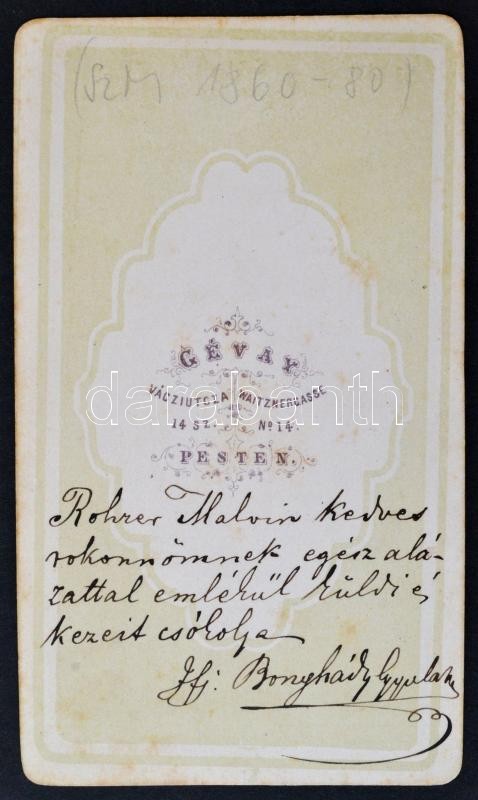 (SzM 1860-80)
GÉVAY
VÁCZIUTCZA WAITZNERGASSE
14 SZ. No 14.
PESTEN.
darabanth
Rohrer Malvin kedves
rokonnőmnek egész alá-
zattal emlékül küldi és
kezeit csókolja
Ifj: Bonyhády Gyula